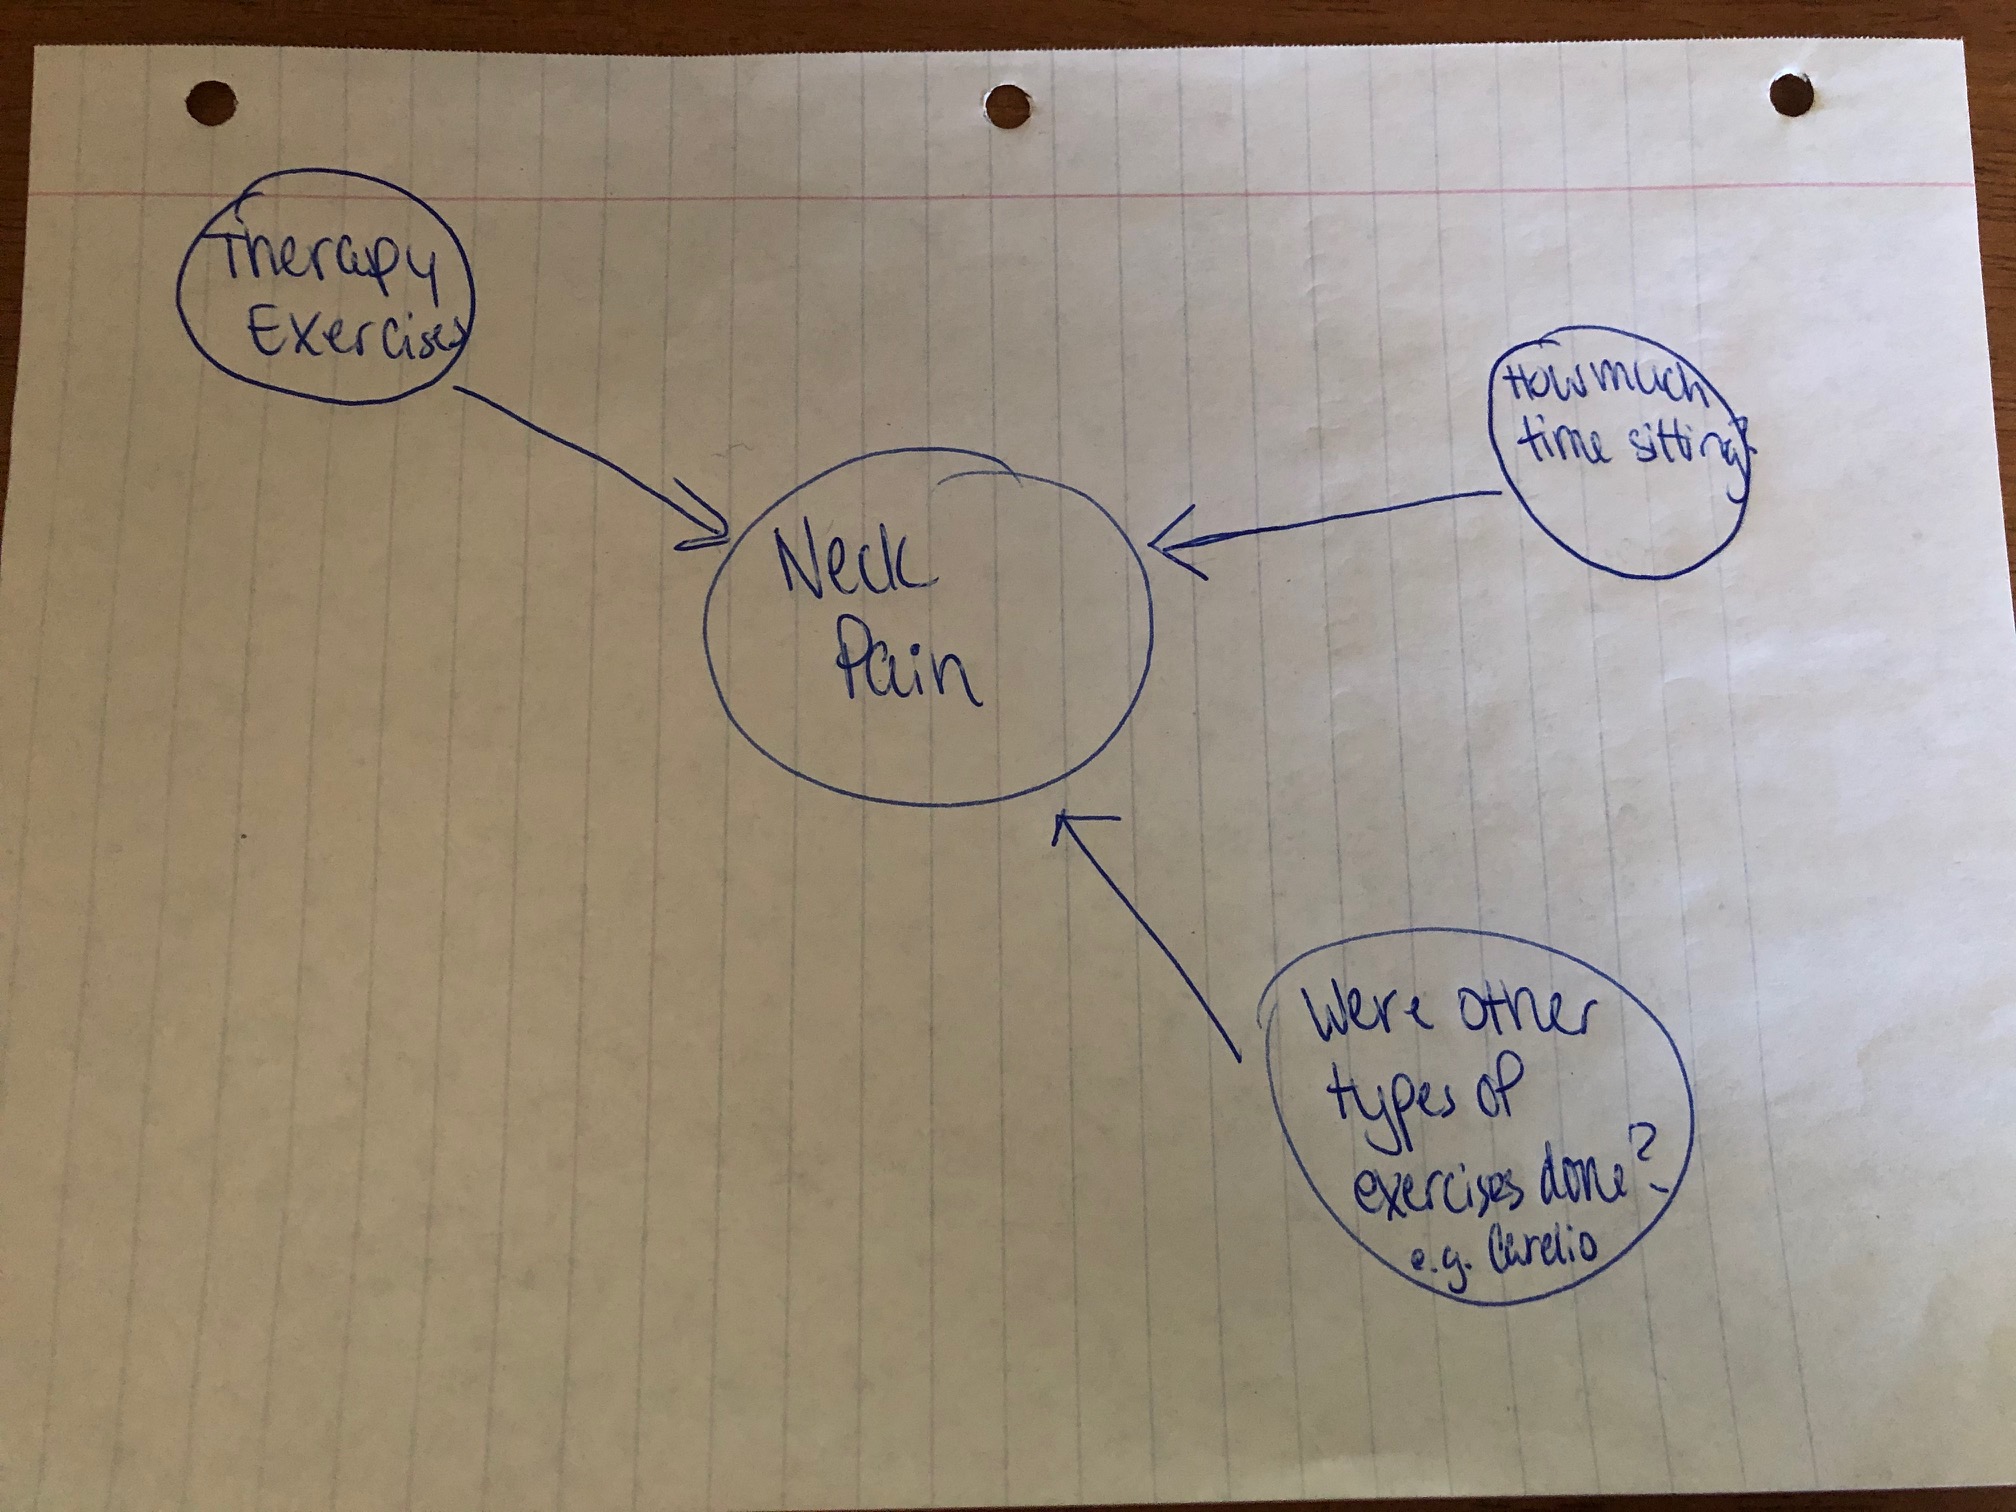 Therapy
Exercises
How much
time sitting?
Neck
Pain
Were other
types of
exercises done?
e.g. Cardio